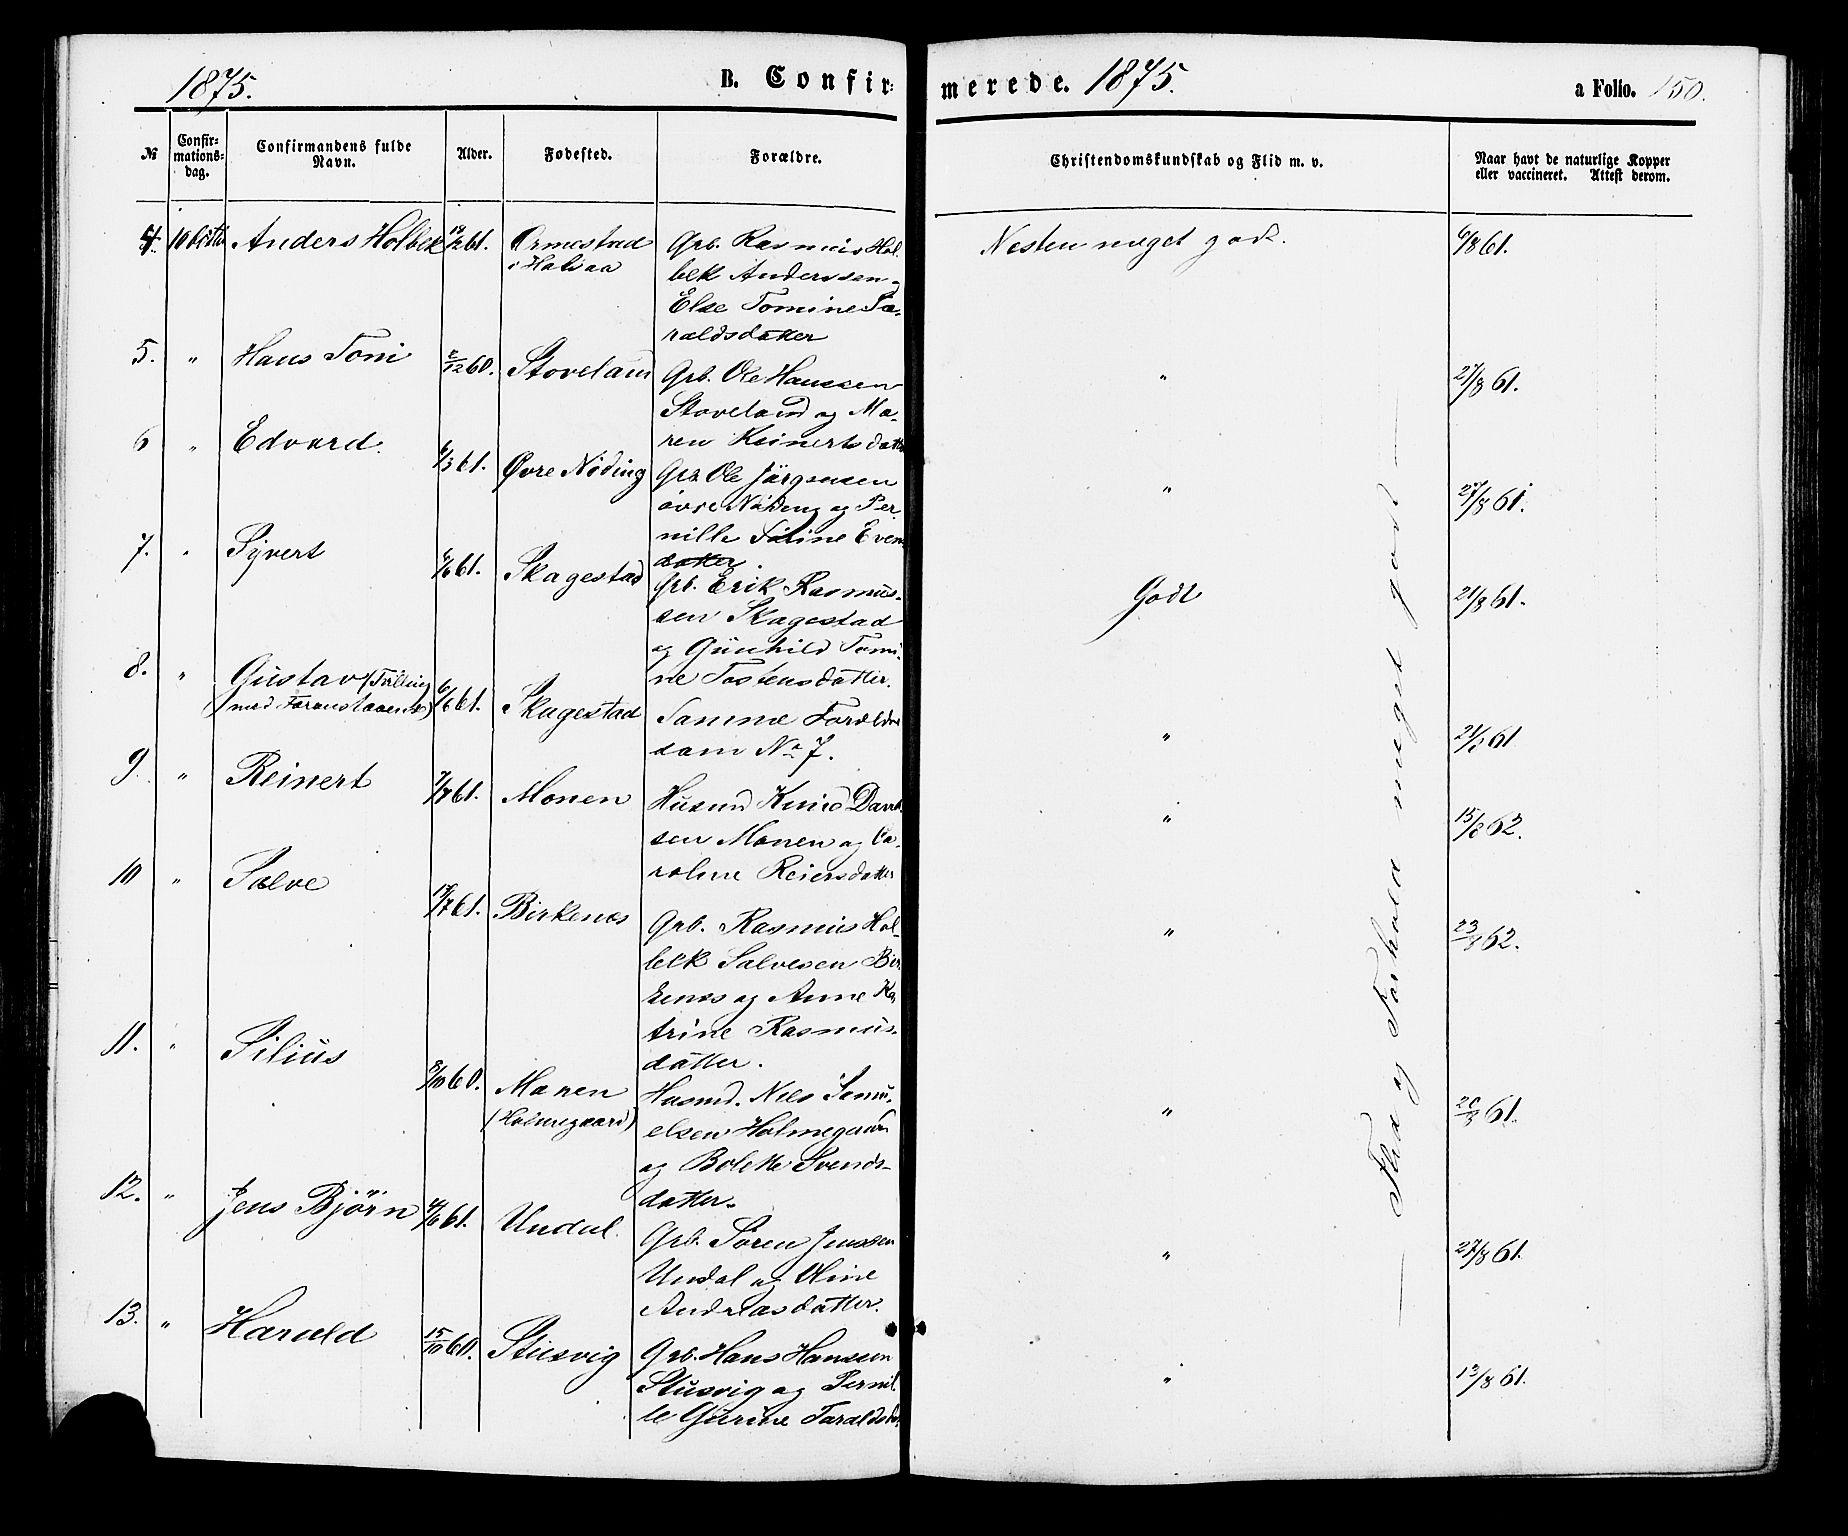 1875.
B. Confir-
merede. 1875.
a Folio. 150.
№
Confir-
mations-
dag.
Confirmandens fulde
Navn.
Alder.
Fødested.
Forældre.
Christendomskundskab og Flid m. v.
Naar havt de naturlige Kopper
eller vaccineret. Attest derom.
4. 10 Anders Holbek 61. Ormestad
i Halsaa
Grb. Rasmus Hol-
bek Anderssen
Else Tomine Ta-
raldsdatter
Nesten meget godt.
6/8 61.
5. " Hans Toni 2/12 60. Stoveland
Grb. Ole Hanssen
Stoveland og Ma-
ren Reinertsdatt
"
27/8 61.
6 " Edvard. 6/3 61. Øvre Nøding
Grb. Ole Jörgensen
övre Nöding og Per
nille Sirine Evens
datter.
"
27/8 61.
7. " Syvert 6/6 61. Skagestad
Grb. Erik Rasmus-
sen Skagestad
og Gunhild Tomi-
ne Tostensdatter.
Godt
21/8 61.
8. " Gustav (Tvilling
med Foranstaaende)
6/6 61. Skagestad
Samme Forældre
som No 7.
"
21/8 61
9. " Reinert 7/8 61. Monen
Husmd Knud Davids
sen Monen og Ca-
roline Reiersdatter
"
15/8 62.
10 " Salve 17/7 61. Birkenes
Grb. Rasmus Hol-
bek Salvesen Bir
kenes og Anne Ka
trine Rasmus-
datter.
"
23/8 62.
11. " Silius 8/10 60. Monen
(Holmegaard)
Husmd. Nels Samu-
elsen Holmegaard
og Bolette Svends-
datter.
"
20/8 61.
12. " Jens Bjørn 4/6 61. Undal.
Grb. Sören Jenssen
Undal og Oline
Andreasdatter.
"
27/8 61.
13. " Harald 15/10 60. Stusvig
Grb. Hans Hanssen
Stusvig og Pernil
le Gurine Taraldsdat
"
13/8 61.
— Flid og Forhold meget godt —